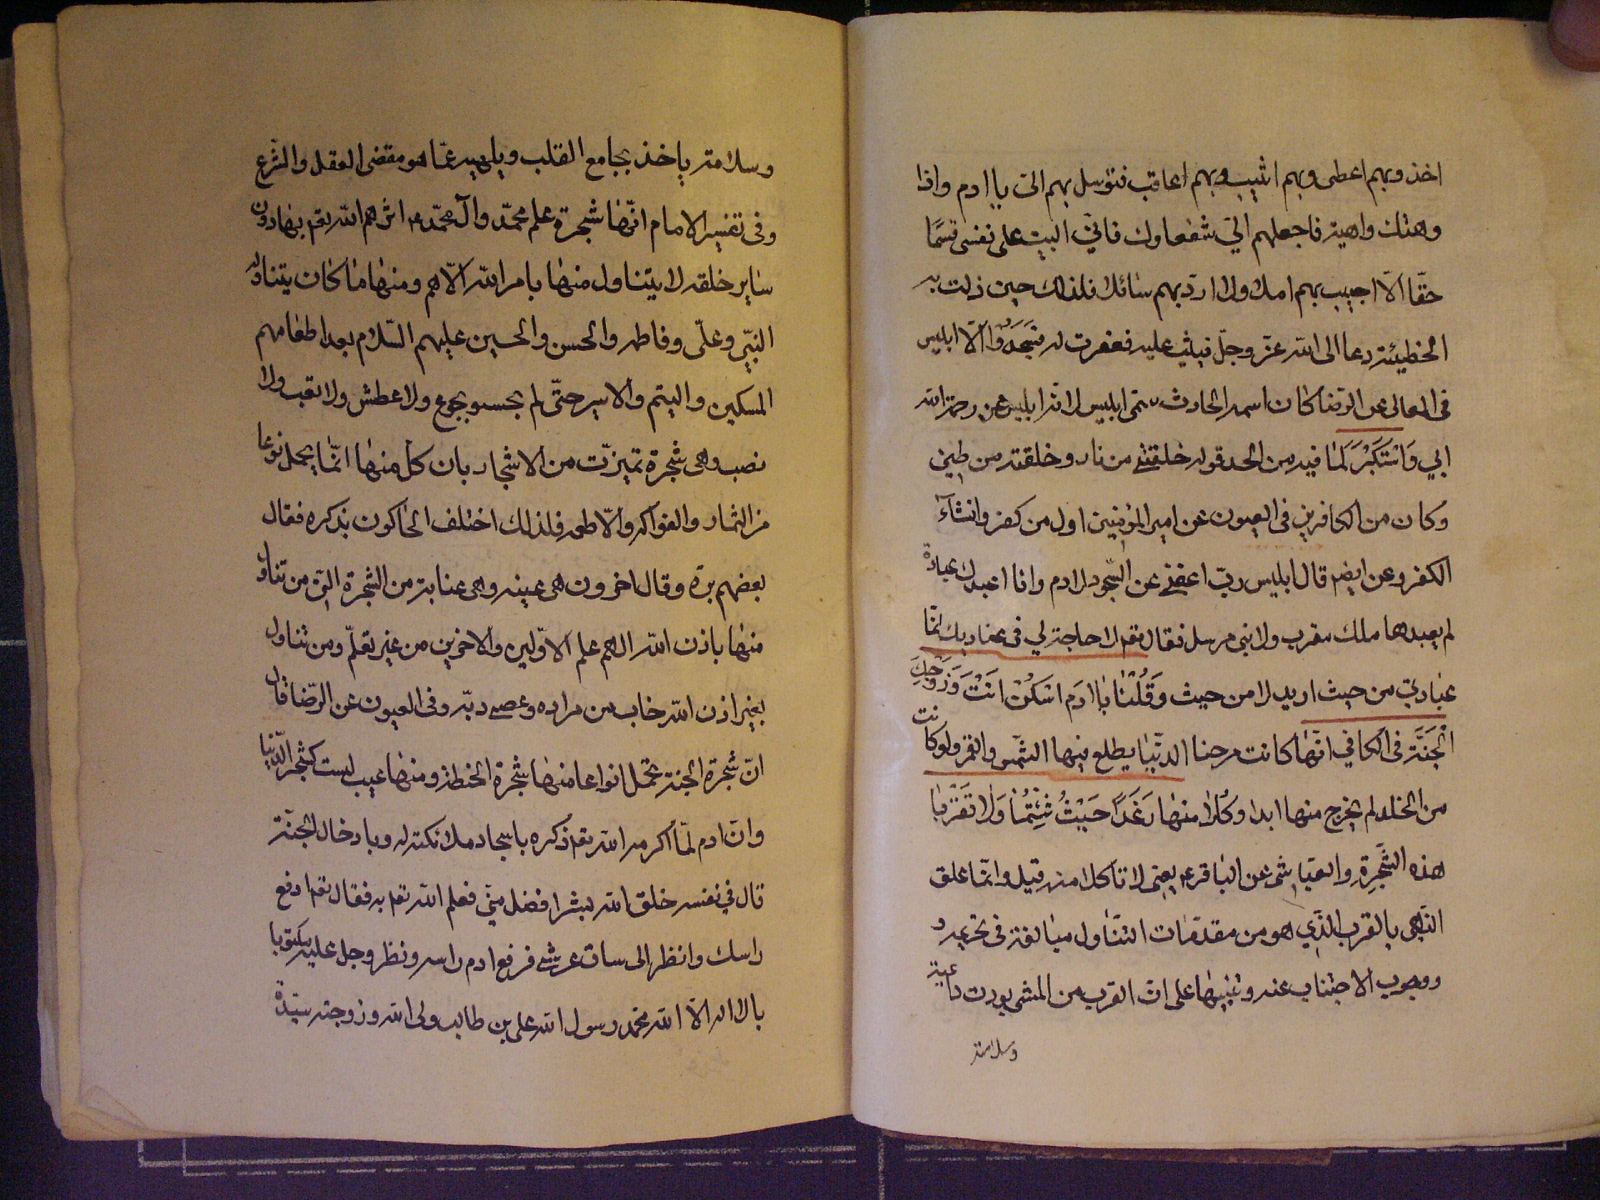 اخذ وبهم اعطی وبهم اثیب وبهم اعاقب فتوسل بهم الیّ یا ادم واذا
دهتك داهیة فاجعلهم الیّ شفعاءك فانّی الیت علی نفسی قسمًا
حقّا الّا اخیب بهم املا ولا اردّ بهم سائلا فلذلك حین زلت به
الخطیئة دعا الی الله عزّ وجلّ فتیب علیه فغفرت له فَسَجَدُوا اِلّا ابلیس
فی المعانی عن الرضا كان اسمه الحارث سمّی ابلیس لانّه ابلیس عن رحمة الله
ابی وَاسْتَكْبَرَ لما فیه من الحسد قوله خلقتنی من نار وخلقته من طین
وكان من الكافرین فی العیون عن امیر المؤمنین اول من كفر وانشاء
الكفر وعن ایضه قال ابلیس ربّ اعفنی عن السّجود لادم وانا اعبدك عبادة
لم یعبدها ملك مقرب ولا نبی مرسل فقال تقم لا حاجة لی فی عبادتك انّما
عبادتی من حیث ارید لا من حیث وَقُلْنَا یا ادَم اسْكُنْ انَتْ وَزَوْجُكَ
الْجَنَّة فی الكافی انّها كانت من جنا الدنیا یطلع فیها الشمس والقمر ولو كانت
من الخلد لم یخرج منها ابدا وَكُلا منها رَغَدًا حَیْثُ شِئْتُمٰا وَلا تَقْرَبٰا
هذه الشَّجرة والعیاشی عن الباقر ع یعنی لا تاكلا منه قیل وانّما علق
النّهی بالقرب الّذی هو من مقدمات التناول مبالغة فی تحریمه و
ووجوب الاجتناب عنه وتنبیها علی انّ القرب من المشی یورث داعیة
وسلامته
وسلامته یاخذ بجامع القلب ویلهیه عمّا هو مقضی العقل والشرع
وفی تفسیر الامام انّها شجرة علم محمّد وال محمّد ع اثرهم الله تقم بها دون
سایر خلقه لا یتناول منها بامر الله الّا هم ومنها ما كان یتناوله
النبی وعلیّ وفاطمه والحسن والحسین علیهم السّلام بعد اطعامهم
المسكین والیتم والاسیر حتّی لم یحسو بجوع ولا عطش ولا تعب ولا
نصب وهی شجرة تمیزت من الاشجار بان كل منها انّما یحمل نوعا
من الثمار والفواكه والاطعمه فلذلك اختلف الحاكون بذكره فقال
بعضهم برّة وقال اخرون هی عینه وهی عنابة من الشجرة التی من تناول
منها باذن الله الهم علم الاوّلین والاخرین من غیر تعلّم ومن تناول
بغیر اذن الله خاب من مراده وعصی ربّه وفی العیون عن الرّضا قال
انّ شجرة الجنة تحمل انواعا منها شجرة الحنطة ومنها عیب لیست كشجر الدّنیا
وانّ ادم لمّا اكرمه الله تقم ذكره باسجاد ملائكته له وبادخال الجنّة
قال فی نفسه خلق الله بشرا افضل منّی فعلم الله تقم به فقال تقم ارفع
راسك وانظر الی ساق عرشی فرفع ادم راسه ونظر وجل علیه مكتوبا
بالا اله الّا الله محمد رسول الله علی بن طالب ولی الله وزوجته سیّدة